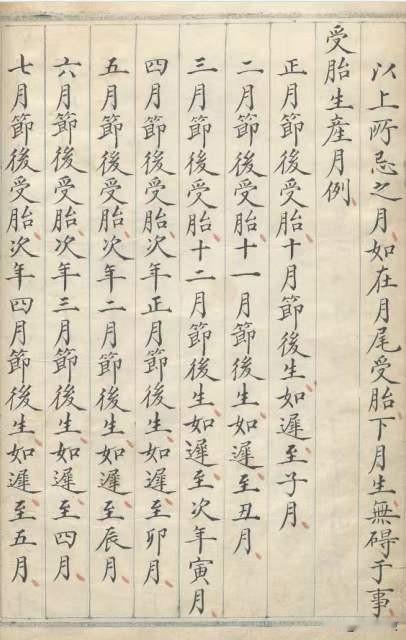 以上所忌之月如在月尾受胎下月生無碍于事
受胎生産月例
正月節後受胎十月節後生如遲至子月
二月節後受胎十一月節後生如遲至丑月
三月節後受胎十二月節後生如遲至次年寅月
四月節後受胎次年正月節後生如遲至卯月
五月節後受胎次年二月節後生如遲至辰月
六月節後受胎次年三月節後生如遲至四月
七月節後受胎次年四月節後生如遲至五月